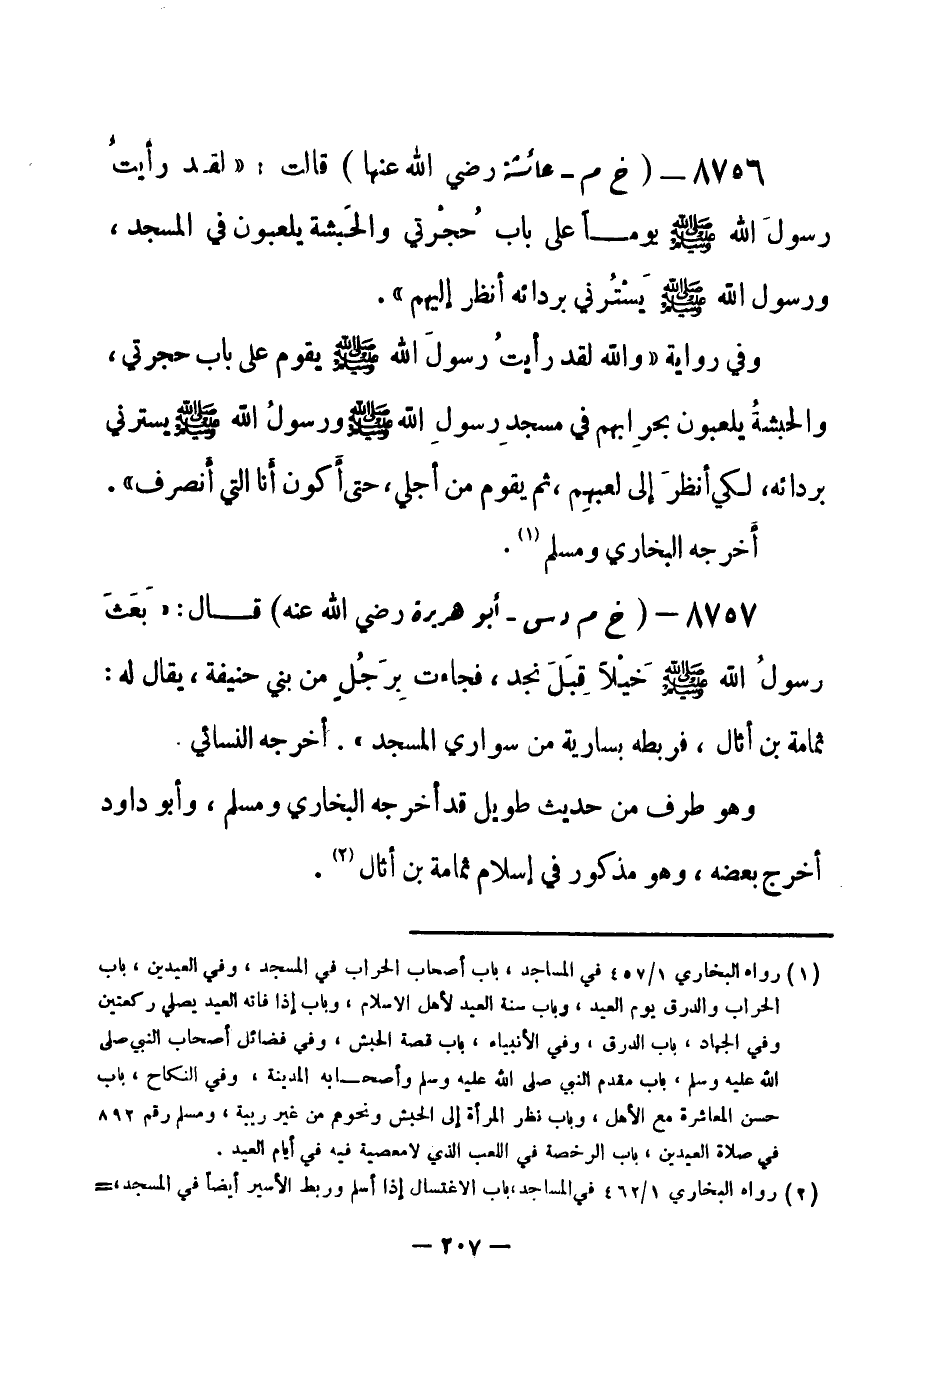 ٨٧٥٦ – ( خ م – عائشة رضي الله عنها ) قالت : « لقد رأيتُ
رسولَ الله ﷺ يوماً على باب حُجْرتي والحَبشة يلعبون في المسجد ،
ورسول الله ﷺ يَسْتُرني بردائه أنظر إليهم » .
وفي رواية « والله لقد رأيتُ رسولَ الله ﷺ يقوم على باب حجرتي ،
والحبشةُ يلعبون بحرابهم في مسجدِ رسولِ الله ﷺ ورسولُ الله ﷺ يسترني
بردائه، لكي أنظرَ إلى لعبهِم ، ثم يقوم من أجلي، حتى أَكون أنا التي أَنصرف» .
أَخرجه البخاري ومسلم (١) .
٨٧٥٧ – ( خ م د س – أبو هريرة رضي الله عنه ) قال : « بَعَثَ
رسولُ الله ﷺ خَيْلاً قِبَلَ نجد ، فجاءت بِرَجُلٍ من بني حنيفة ، يقال له :
ثمامة بن أثال ، فربطه بسارية من سواري المسجد » . أخرجه النسائي .
وهو طرف من حديث طويل قد أخرجه البخاري ومسلم ، وأبو داود
أخرج بعضه ، وهو مذكور في إسلام ثمامة بن أثال (٢) .
(١) رواه البخاري ٤٥٧/١ في المساجد ، باب أصحاب الحراب في المسجد ، وفي العيدين ، باب
الحراب والدرق يوم العيد ، وباب سنة العيد لأهل الاسلام ، وباب إذا فاته العيد يصلي ركعتين
وفي الجهاد ، باب الدرق ، وفي الأنبياء ، باب قصة الحبش ، وفي فضائل أصحاب النبي صلى
الله عليه وسلم ، باب مقدم النبي صلى الله عليه وسلم وأصحابه المدينة ، وفي النكاح ، باب
حسن المعاشرة مع الأهل ، وباب نظر المرأة إلى الحبش ونحوهم من غير ريبة ، ومسلم رقم ٨٩٢
في صلاة العيدين ، باب الرخصة في اللعب الذي لا معصية فيه في أيام العيد .
(٢) رواه البخاري ٤٦٢/١ في المساجد ،باب الاغتسال إذا أسلم وربط الأسير أيضاً في المسجد،=
– ٢٠٧ –